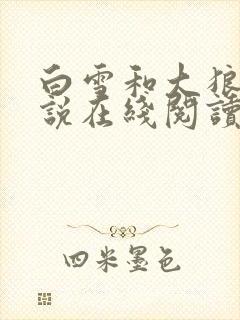 白雪和大狼
說在綫閱讀
四米墨色